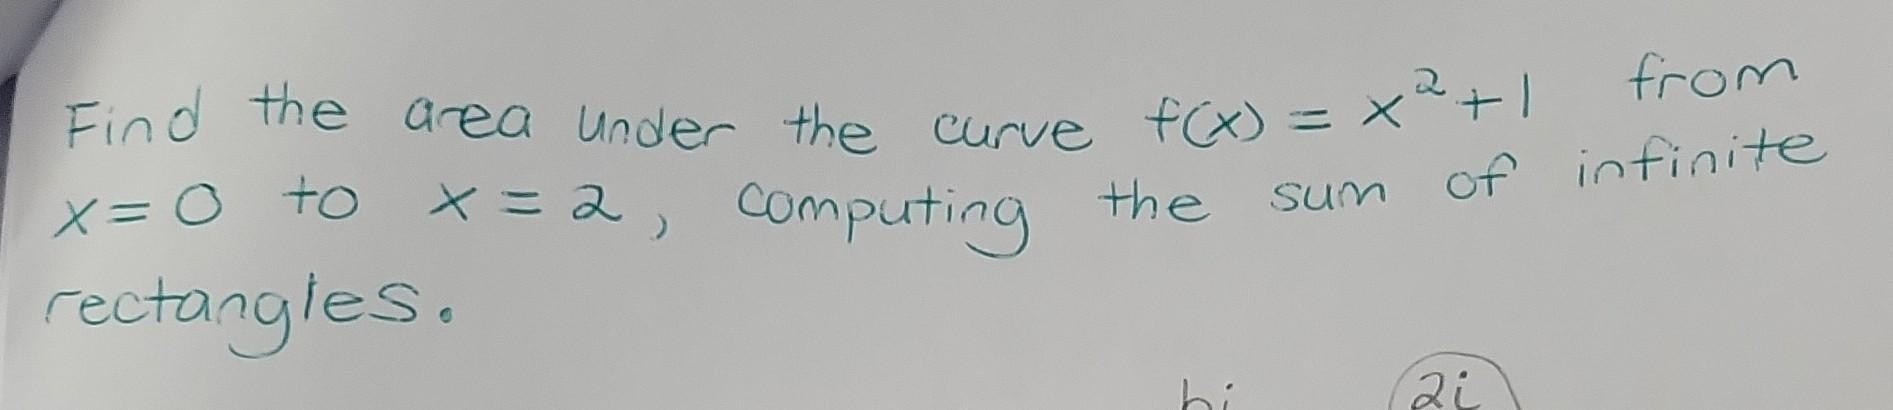 Find the area under the curve f(x) = x² + 1 from
x = 0 to x = 2, computing the sum of infinite
rectangles.
2i